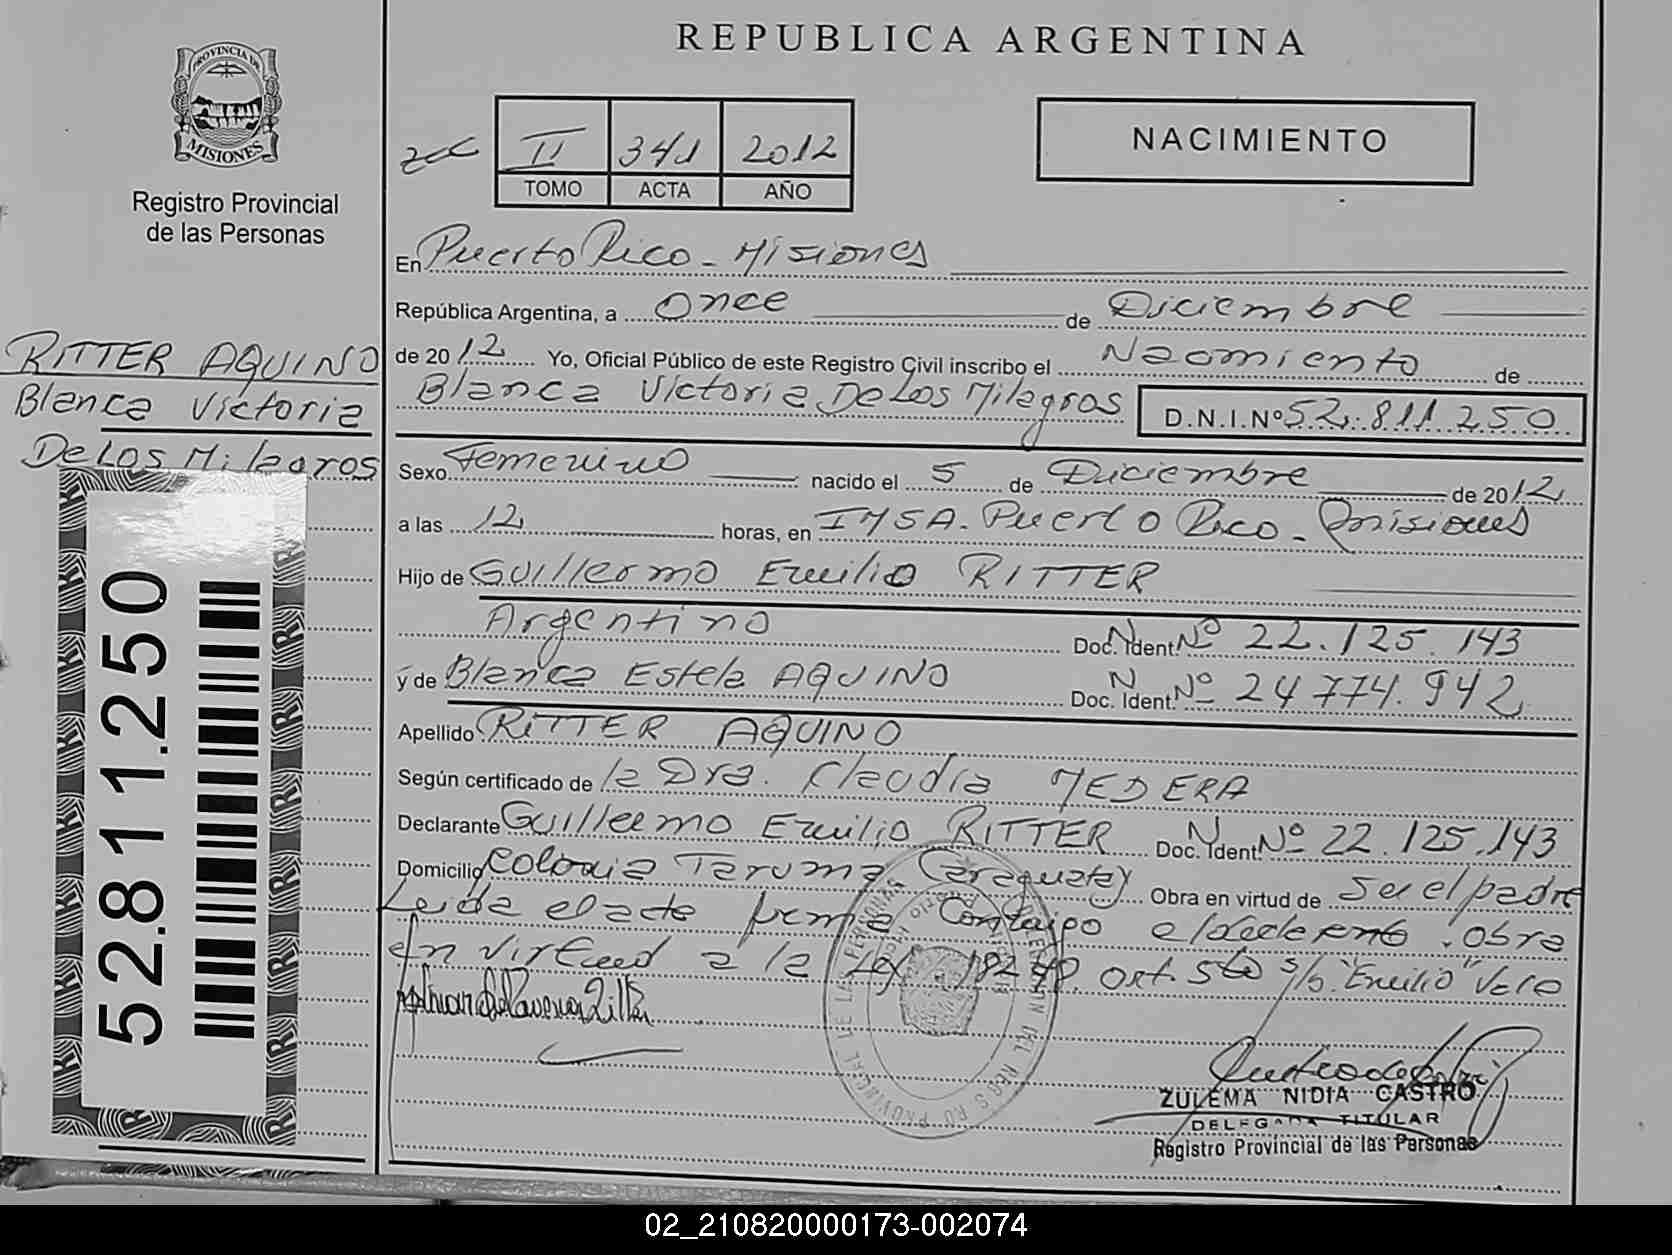 REPUBLICA ARGENTINA
PROVINCIA DE
MISIONES
Registro Provincial
de las Personas
II 341 2012
TOMO ACTA AÑO
NACIMIENTO
En Puerto Rico - Misiones
República Argentina, a Once de Diciembre
de 2012 Yo, Oficial Público de este Registro Civil inscribo el Nacimiento de
Blanca Victoria De Los Milagros D.N.I.Nº 52.811.250
RITTER AQUINO
Blanca Victoria
De Los Milagros
52.811.250
Sexo Femenino nacido el 5 de Diciembre de 2012
a las 12 horas, en IMSA. Puerto Rico - Misiones
Hijo de Guillermo Emilio RITTER
Argentino Doc. Ident. Nº 22.125.143
y de Blanca Estela AQUINO Doc. Ident. Nº 24774.942
Apellido RITTER AQUINO
Según certificado de la Dra. Claudia MEDERA
Declarante Guillermo Emilio RITTER Doc. Ident. Nº 22.125.143
Domicilio Colonia Taruma Caraguatay Obra en virtud de Ser el padre
Leida el acta firma Conmigo el declarante. Obra
en virtud a la Ley 18248. Art. 5to s/b. "Emilio" Vale
ZULEMA NIDIA CASTRO
DELEGADA TITULAR
Registro Provincial de las Personas
02_210820000173-002074